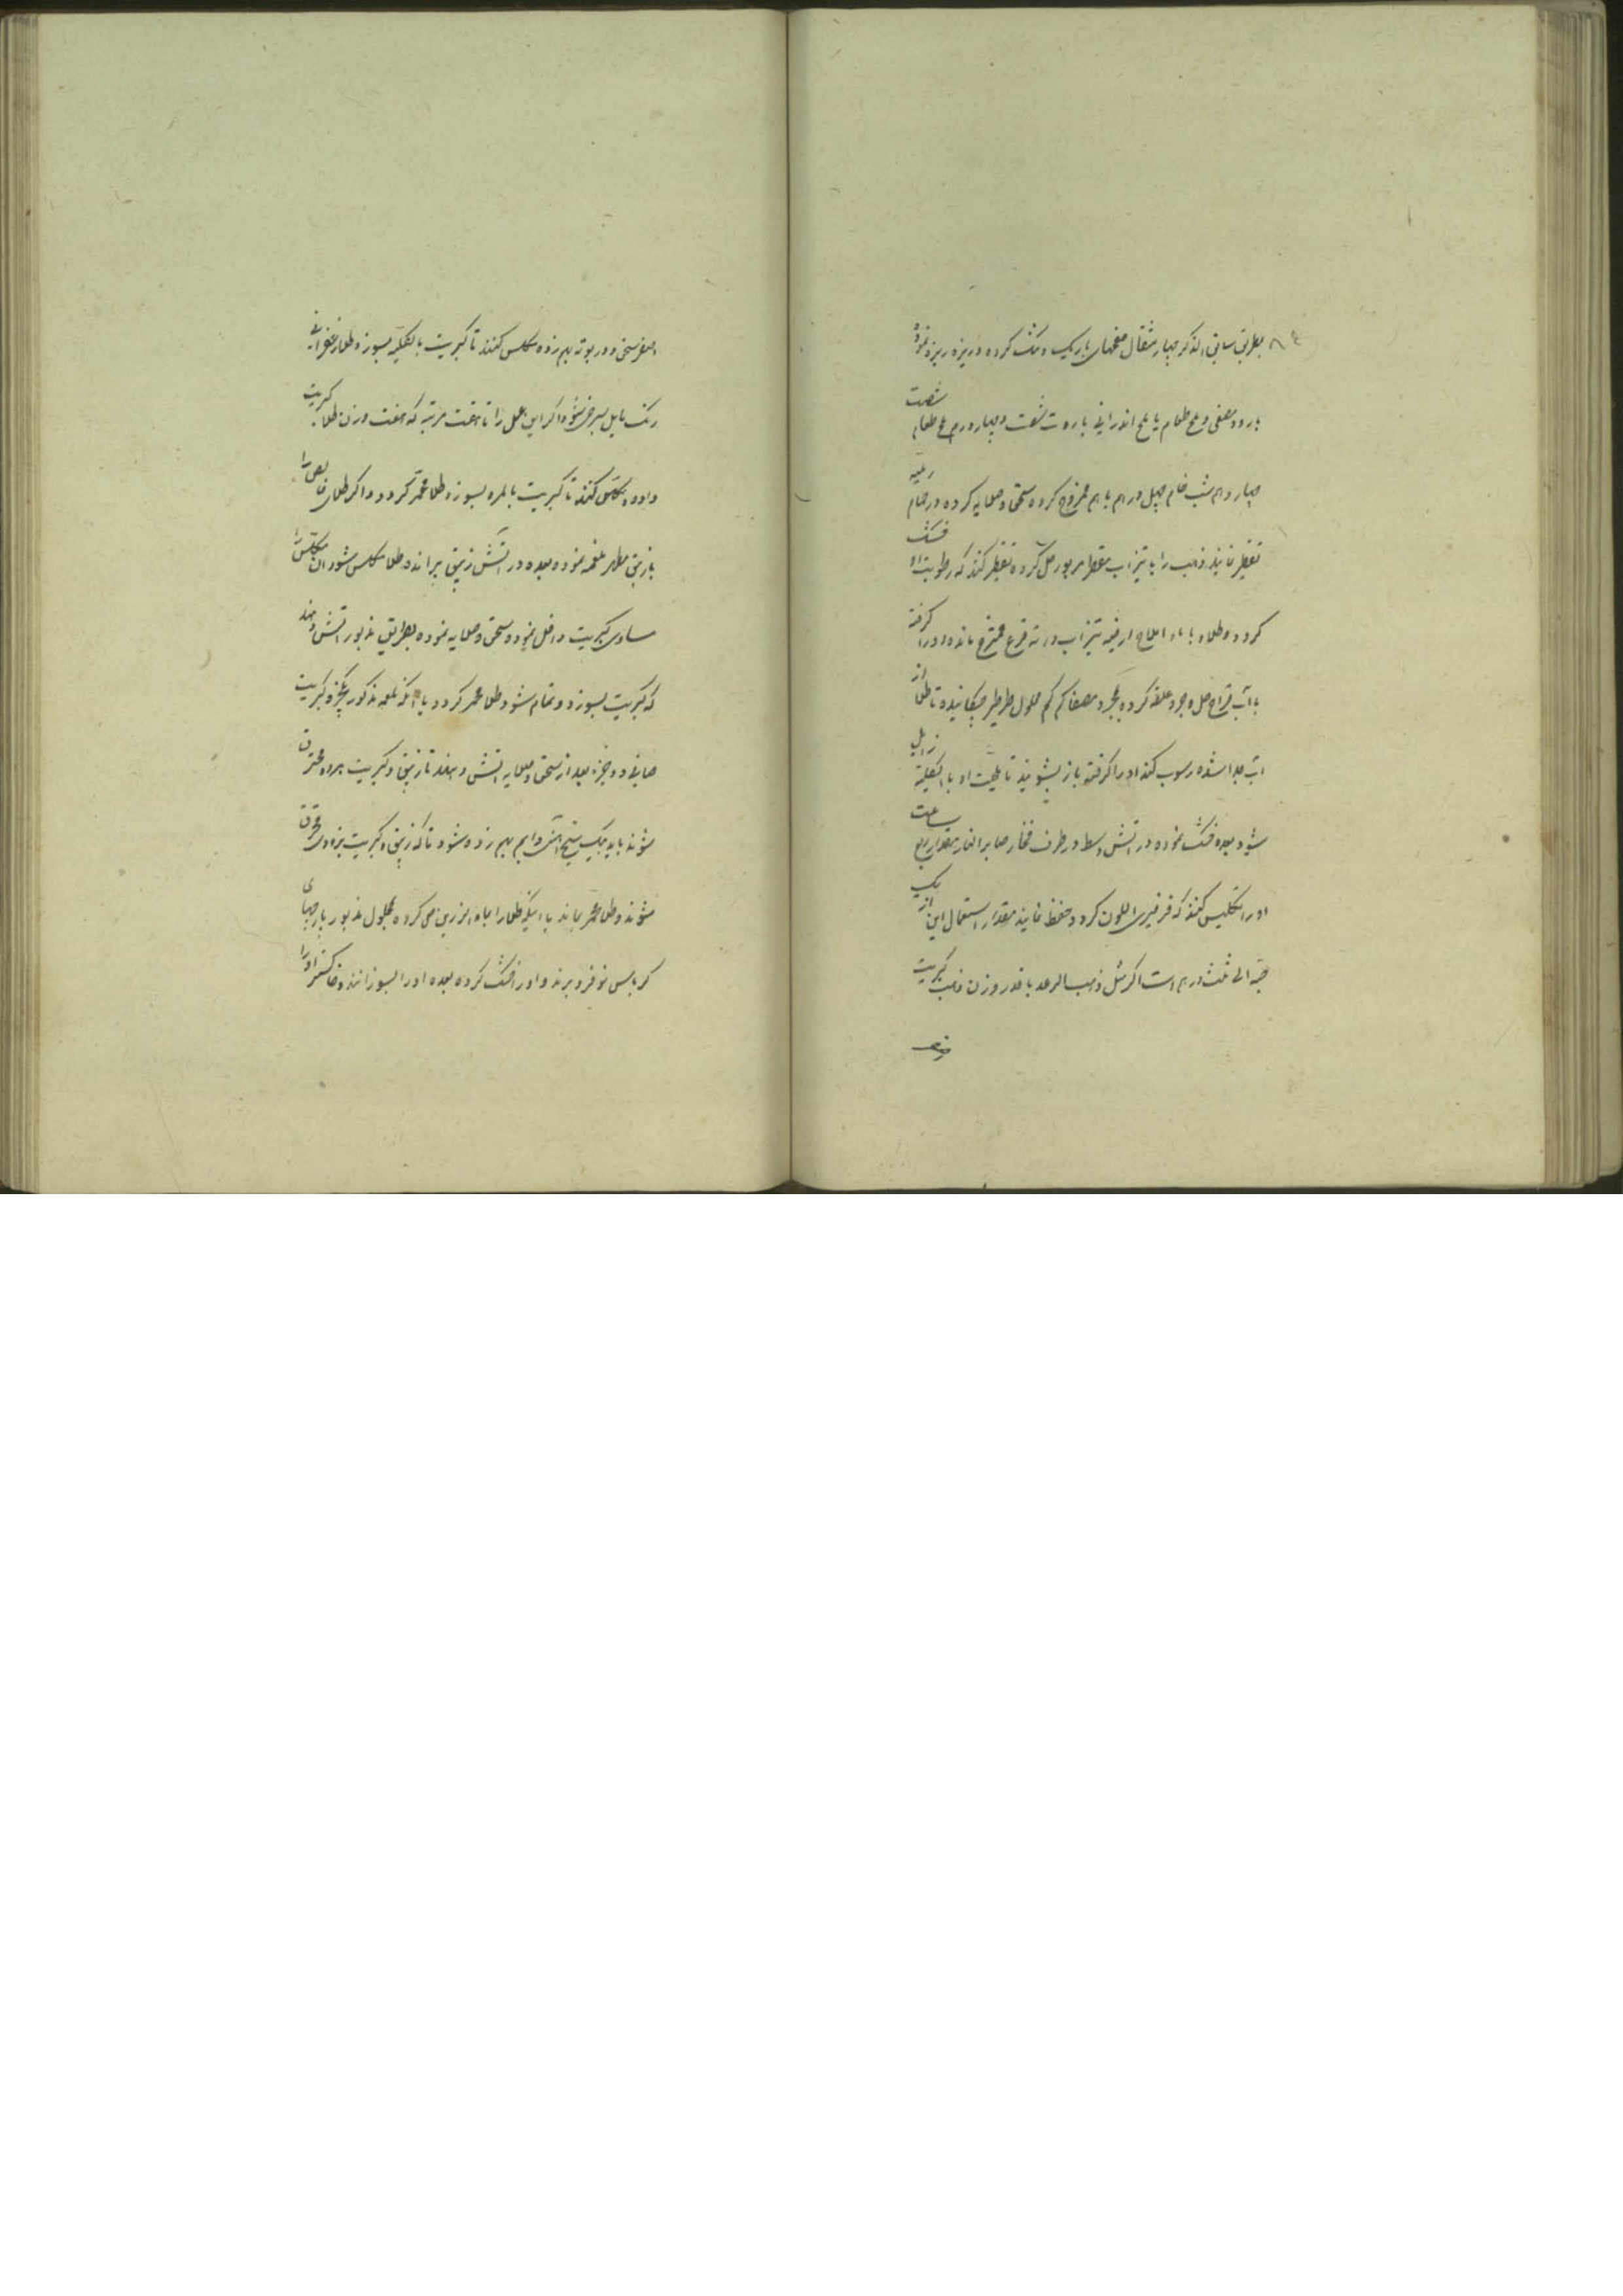 بطریق سابق الذکر چهار مثقال صفحهای باریک و تنک کرده و ریزه ریزه نموده
بارود مصفی و ملح طعام یا ملح اندرانی بارود شصت و چهار درم ملح طعام شصت
چهار درم شب خام چهل درم باهم ممزوج کرده سحق و صلایه کرده در حمام رملیه
تقطیر نمایند ذهب را با تیزاب مقطر مزبور حل کرده تقطیر کنند که رطوبت او خشک
کردد و طلاء با املاح ارضیه تیزاب در ته قرع ممتزج مانده او را کرفته
با آب قراح حل و جرد علقه کرده بجرد مصفا کم کم محلول طرطیر چکانیده تا طلا از
آب جدا شده رسوب کند او را کرفته باز بشویند تا ملحیت او بالکلیه زایل
شود بعده خشک نموده در آتش وسط در ظرف فخار صابر النار مقدار ربع ساعت
او را تکلیس کنند که فرفیری اللون کردد حفظ نمایند مقدار استعمال این از یک
حبه الی ثلث درم است اکر مثل ذهب الرعد با قدر وزن ذهب کبریت
اصفر سحق و در بوته بهم زده مکلس کنند تا کبریت بالکلیه بسوزد و طلا زعفرانی
رنک مایل بسرخی شود و اکر این عمل را تا هفت مرتبه که هفت وزن طلا کبریت
داده مکلس کنند تا کبریت بالمره بسوزد و طلا محمر کردد و اکر طلای خالص را
بازیبق مطهر ملغمه نموده بعده در آتش زیبق بپرانند و طلا مکلس شود آن مکلس را
مساوی کبریت داخل نموده و سحق و صلایه نموده بطریق مذبور آتش دهند
که کبریت بسوزد و تمام شود و طلا محمر کردد یا آنکه ملغمه مذکور یکجزو کبریت
صاف دو جزء بعد از سحق و صلایه آتش دهند تا زیبق و کبریت هر دو محترق
شوند باید بیک سیخ آهنی دایم بهم زده شود تا که زیبق و کبریت بزودی محترق
شوند و طلا محمر بماند یا اینکه طلا را بماء الرزین حل کرده بمحلول مذبور پارچهای
کرباس نو فرو برند و او را خشک کرده بعده او را بسوزانند و خاکستر او را